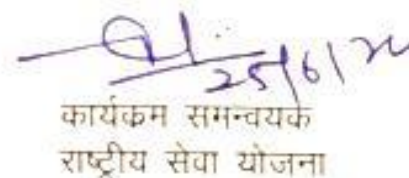 25/6/20
कार्यक्रम समन्वयक
राष्ट्रीय सेवा योजना